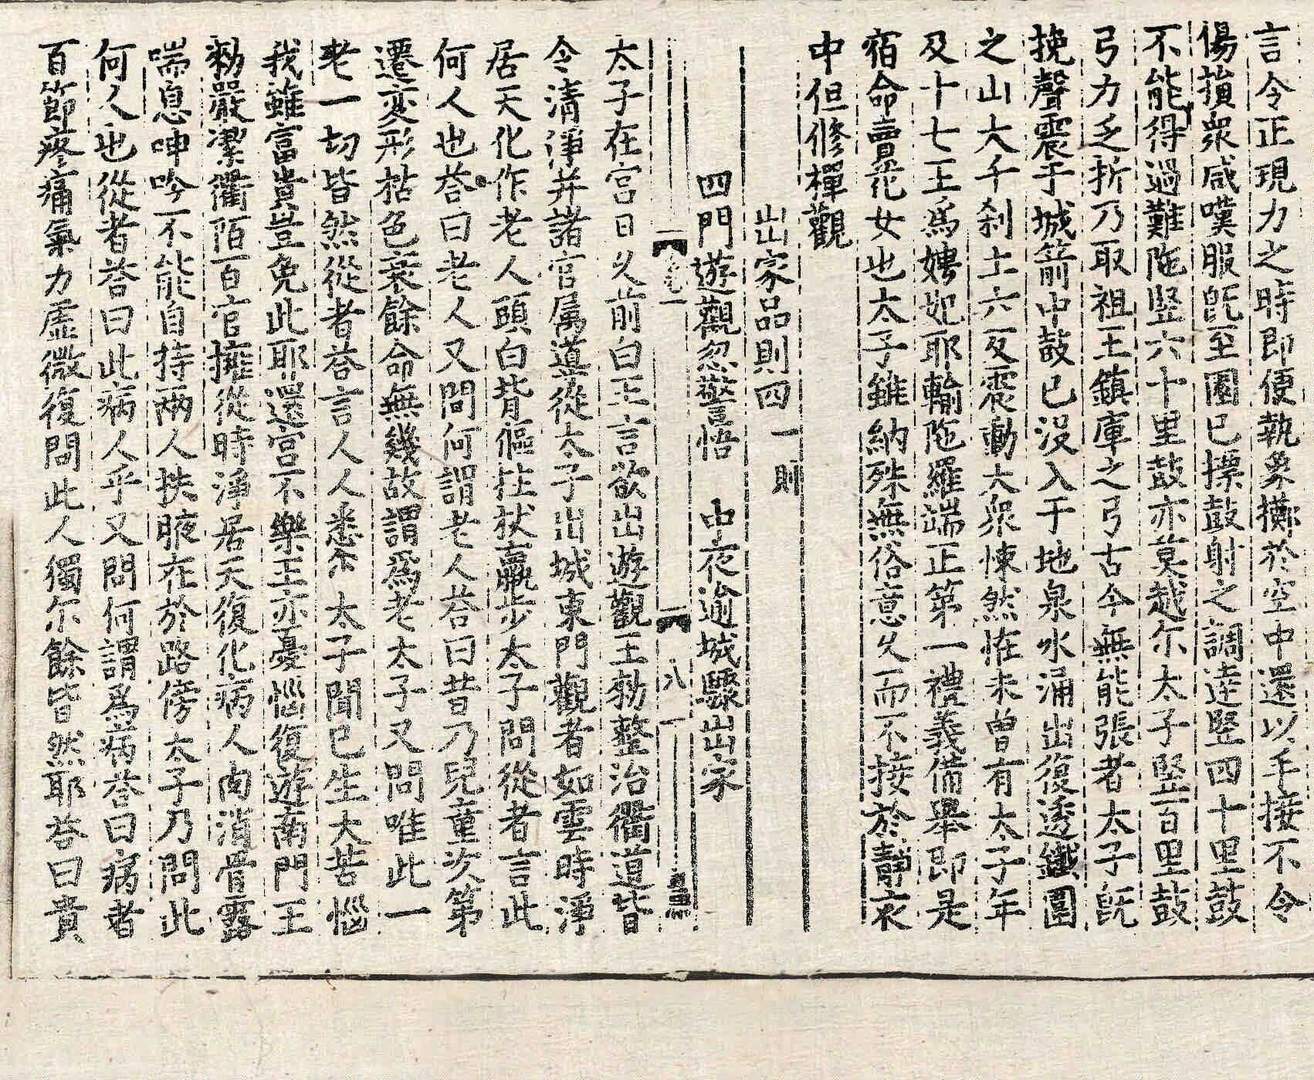 言令正現力之時即便執象擲於空中還以手接不令
傷損衆咸嘆服旣至園已摽鼓射之調逹竪四十里鼓
不能得過難陁竪六十里鼓亦莫越尔太子竪百里鼓
弓力乏折乃取祖王鎮庫之弓古今無能張者太子旣
挽聲震于城箭中鼓已没入于地泉水涌出復透鐵圍
之山大千刹土六反震動大衆悚然恠未曽有太子年
及十七王爲娉妃耶輸陁羅端正第一禮義備舉即是
宿命賣花女也太子雖納殊無俗意久而不接於靜夜
中但修禪觀
出家品則四 一則
四門遊觀忽警悟 中夜逾城驟出家
卷一
八
太子在宫日久前白王言欲出遊觀王勑整治衢道皆
令清淨并諸官属導從太子出城東門觀者如雲時淨
居天化作老人頭白背傴拄杖羸步太子問從者言此
何人也荅曰老人又問何謂老人荅曰昔乃兒童次第
遷变形枯色衰餘命無幾故謂爲老太子又問唯此一
老一切皆然從者荅言人人悉尒太子聞已生大苦惱
我雖富貴豈免此耶還宫不樂王亦憂惱復遊南門王
勑嚴潔衢陌百官擁從時淨居天復化病人肉消骨露
喘息呻吟不能自持兩人扶腋在於路傍太子乃問此
何人也從者荅曰此病人乎又問何謂爲病荅曰病者
百節疼痛氣力虛微復問此人獨尔餘皆然耶荅曰貴